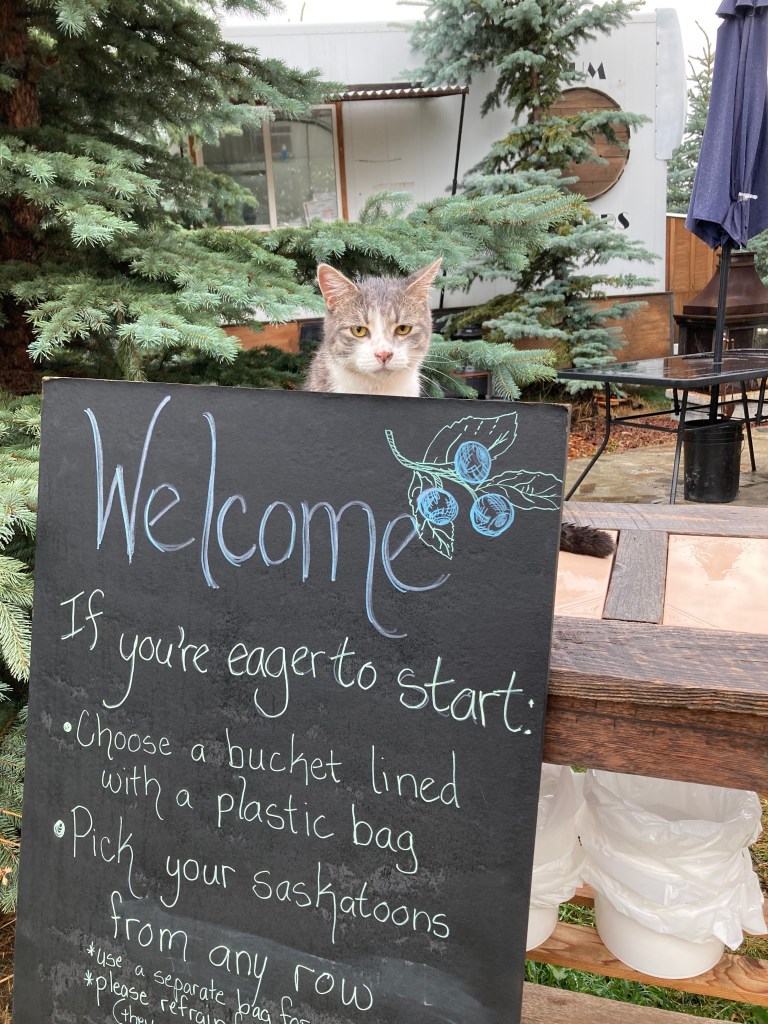 UM
Welcome
If you're eager to start:
• Choose a bucket lined
with a plastic bag
• Pick your saskatoons
from any row
*use a separate bag for
*please refrain
(they